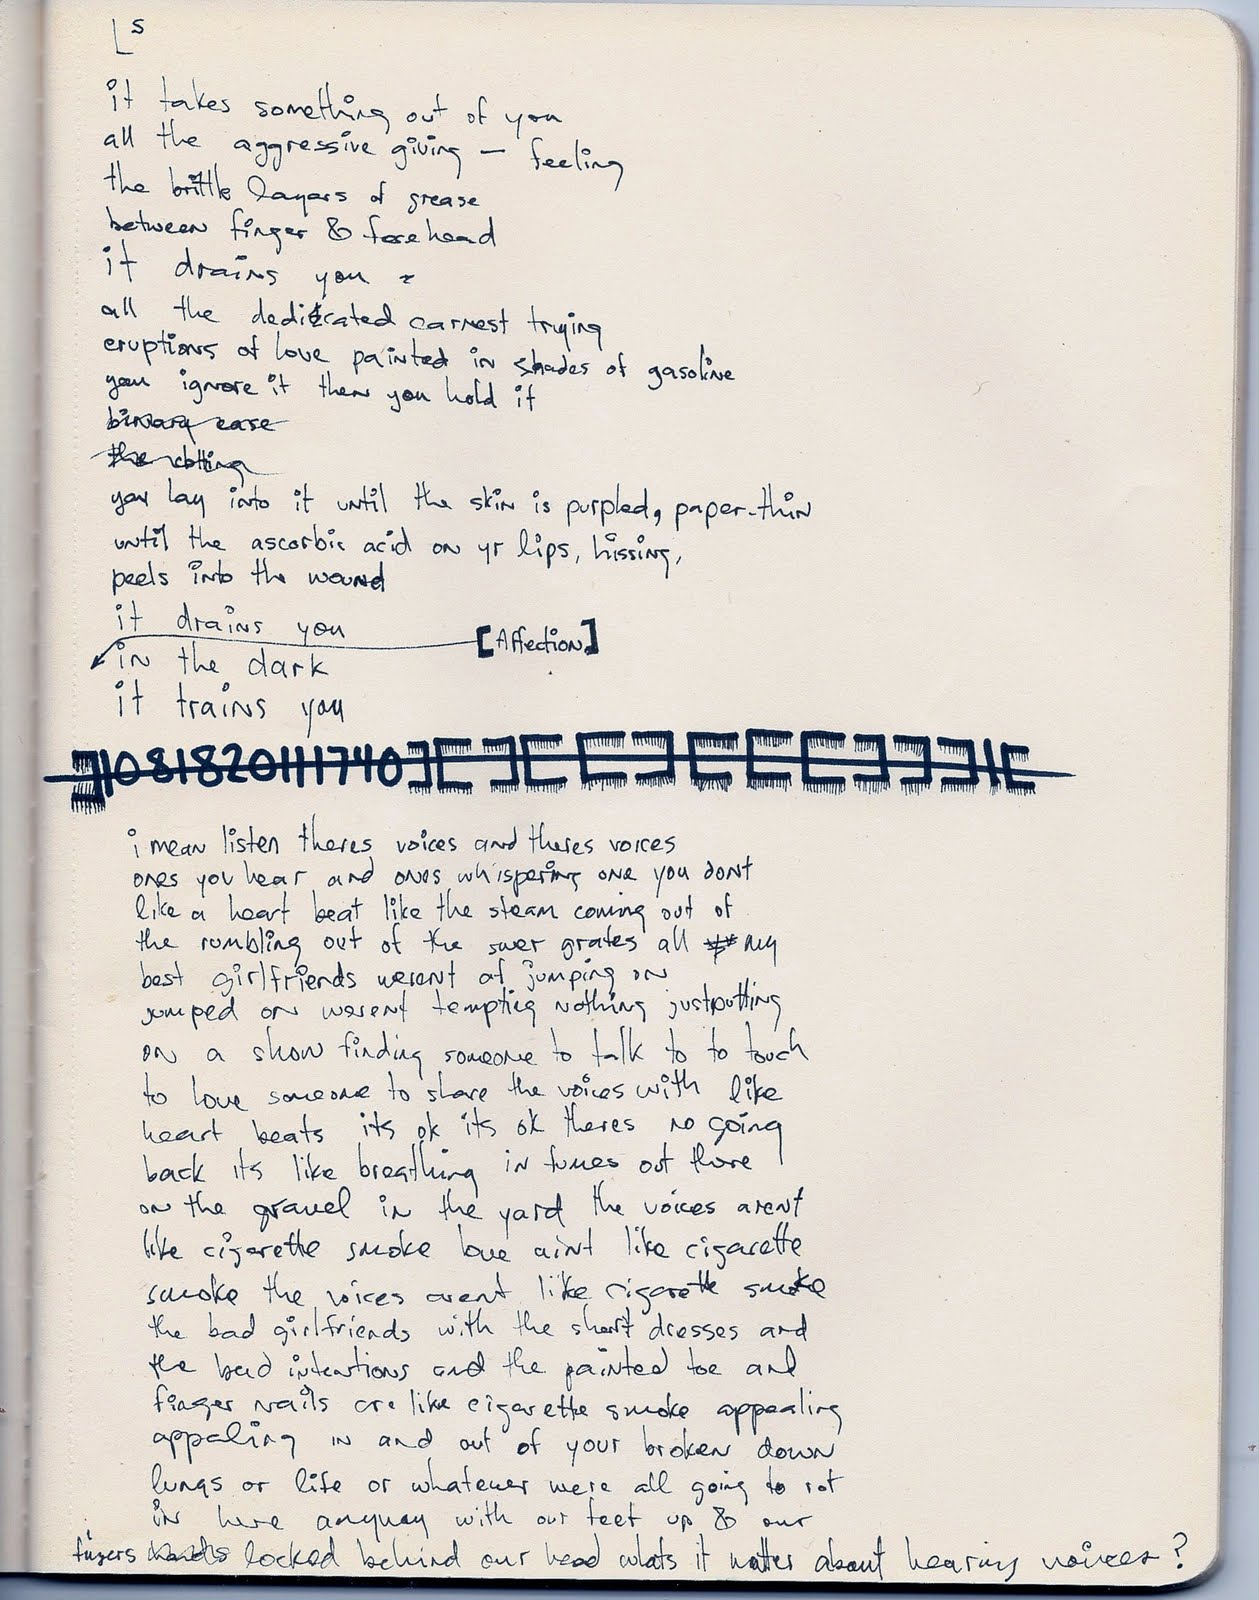 Ls
it takes something out of you
all the aggressive giving — feeling
the brittle layers of grease
between finger & forehead
it drains you ~
all the dedicated earnest trying
eruptions of love painted in shades of gasoline
you ignore it then you hold it
binary ease
the
you lay into it until the skin is purpled, paper-thin
until the ascorbic acid on yr lips, hissing,
peels into the wound
it drains you
[Affection]
in the dark
it trains you
]1081820111740][][[][[[]]]1[
i mean listen theres voices and theres voices
ones you hear and ones whispering one you dont
like a heart beat like the steam coming out of
the rumbling out of the swer grates all my
best girlfriends werent at jumping on
jumped on werent temptieg nothing justputting
on a show finding someone to talk to to touch
to love someone to share the voices with like
heart beats its ok its ok theres no going
back its like breathing in fumes out there
on the gravel in the yard the voices arent
like cigarette smoke love aint like cigarette
smoke the voices arent like cigarette smoke
the bad girlfriends with the short dresses and
the bad intentions and the painted toe and
finger nails are like cigarette smoke appealing
appaling in and out of your broken down
lungs or life or whatever were all going to rot
in here anyway with our feet up & our
fingers hands locked behind our head whats it matter about hearing voices?